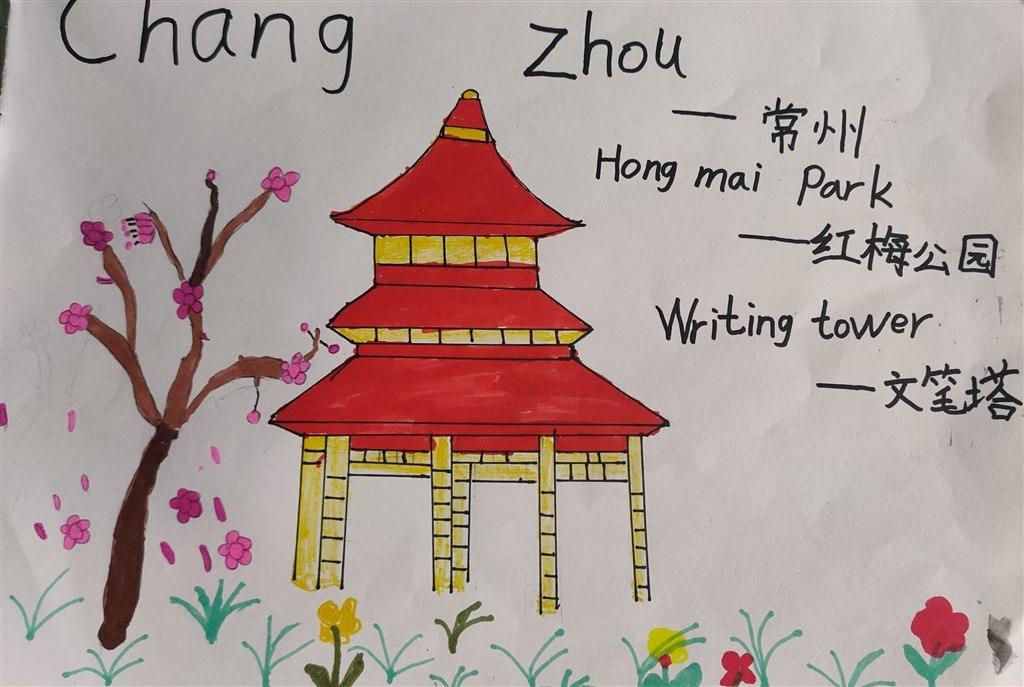 Chang Zhou
一 常州
Hong mai Park
一 红梅公园
Writing tower
一 文笔塔